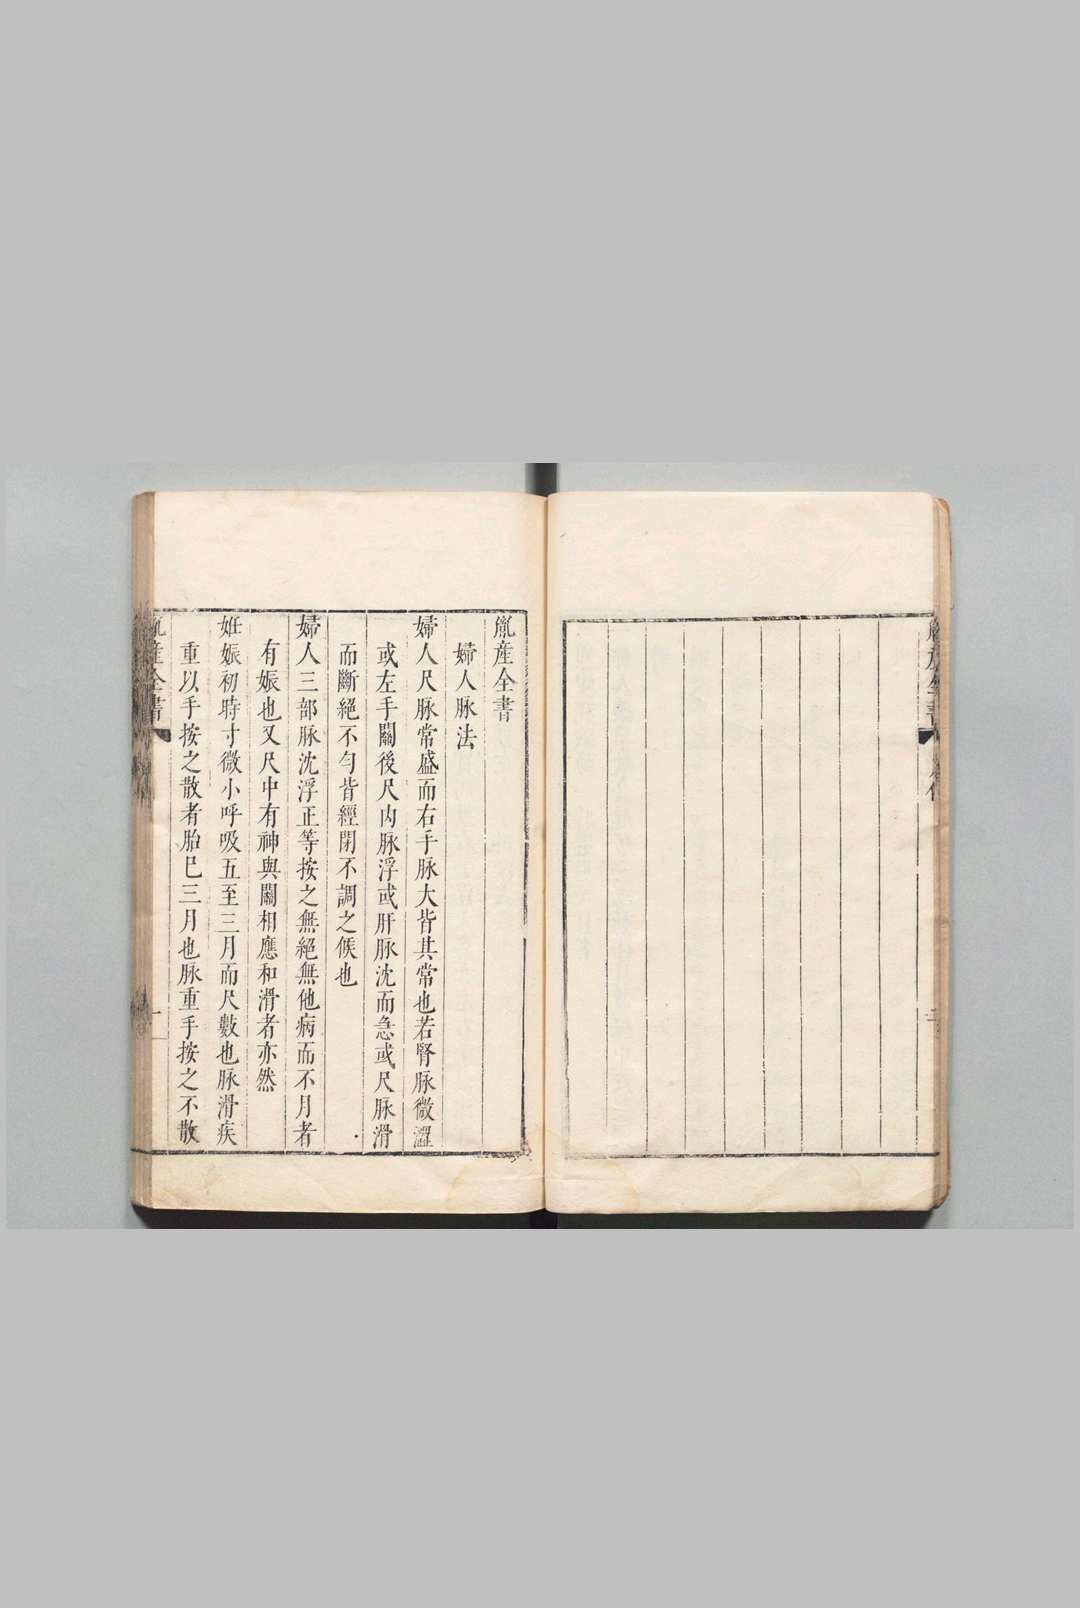 胤産全書
婦人脉法
婦人尺脉常盛而右手脉大皆其常也若腎脉微澀
或左手關後尺内脉浮或肝脉沈而急或尺脉滑
而斷絕不勻皆經閉不調之候也
婦人三部脉沈浮正等按之無絕無他病而不月者
有娠也又尺中有神與關相應和滑者亦然
妊娠初時寸微小呼吸五至三月而尺數也脉滑疾
重以手按之散者胎巳三月也脉重手按之不散
胤産全書